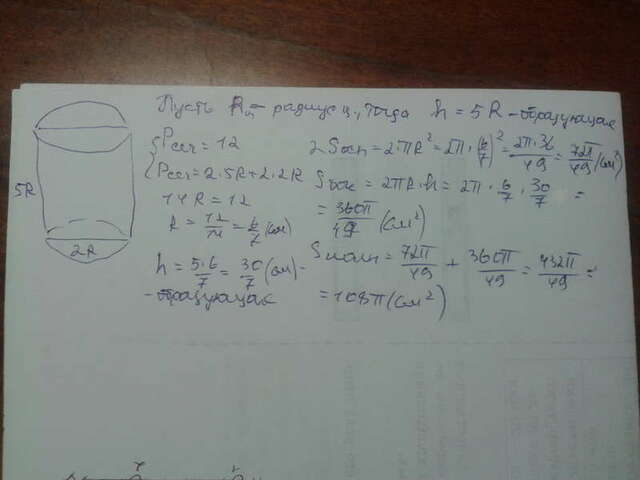 Пусть R - радиус ц., тогда h = 5R - образующая
{Pсеч = 12
Pсеч = 2·5R + 2·2R
14R = 12
R = 12/14 = 6/7 (см)
h = 5·6/7 = 30/7 (см) -
- образующая
2Sосн = 2·πR² = 2π·(6/7)² = 2π·36/49 = 72π/49 (см²)
Sбок = 2πR·h = 2π · 6/7 · 30/7 =
= 360π/49 (см²)
Sполн = 72π/49 + 360π/49 = 432π/49 =
= 108π (см²)
5R
2R